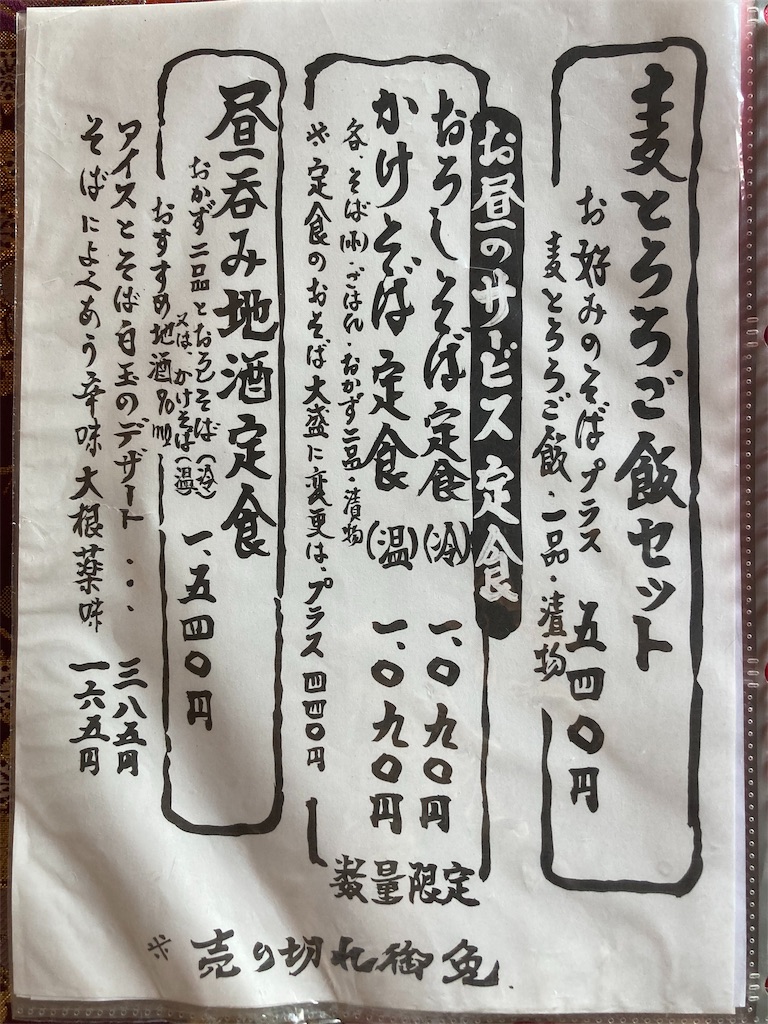 麦とろろご飯セット
お好みのそばプラス 五四〇円
麦とろろご飯・一品・漬物
お昼のサービス定食
おろしそば定食(冷) 一、〇九〇円
かけそば定食(温) 一、〇九〇円
各、そば(小)・ごはん・おかず二品・漬物
※定食のおそば大盛に変更は、プラス四四〇円
数量限定
昼呑み地酒定食
おかず二品とおろしそば(冷)
又は、かけそば(温)
おすすめ地酒90ml 一、五四〇円
アイスとそば白玉のデザート・・・ 三八五円
そばによくあう辛味大根薬味 一六五円
※売り切れ御免